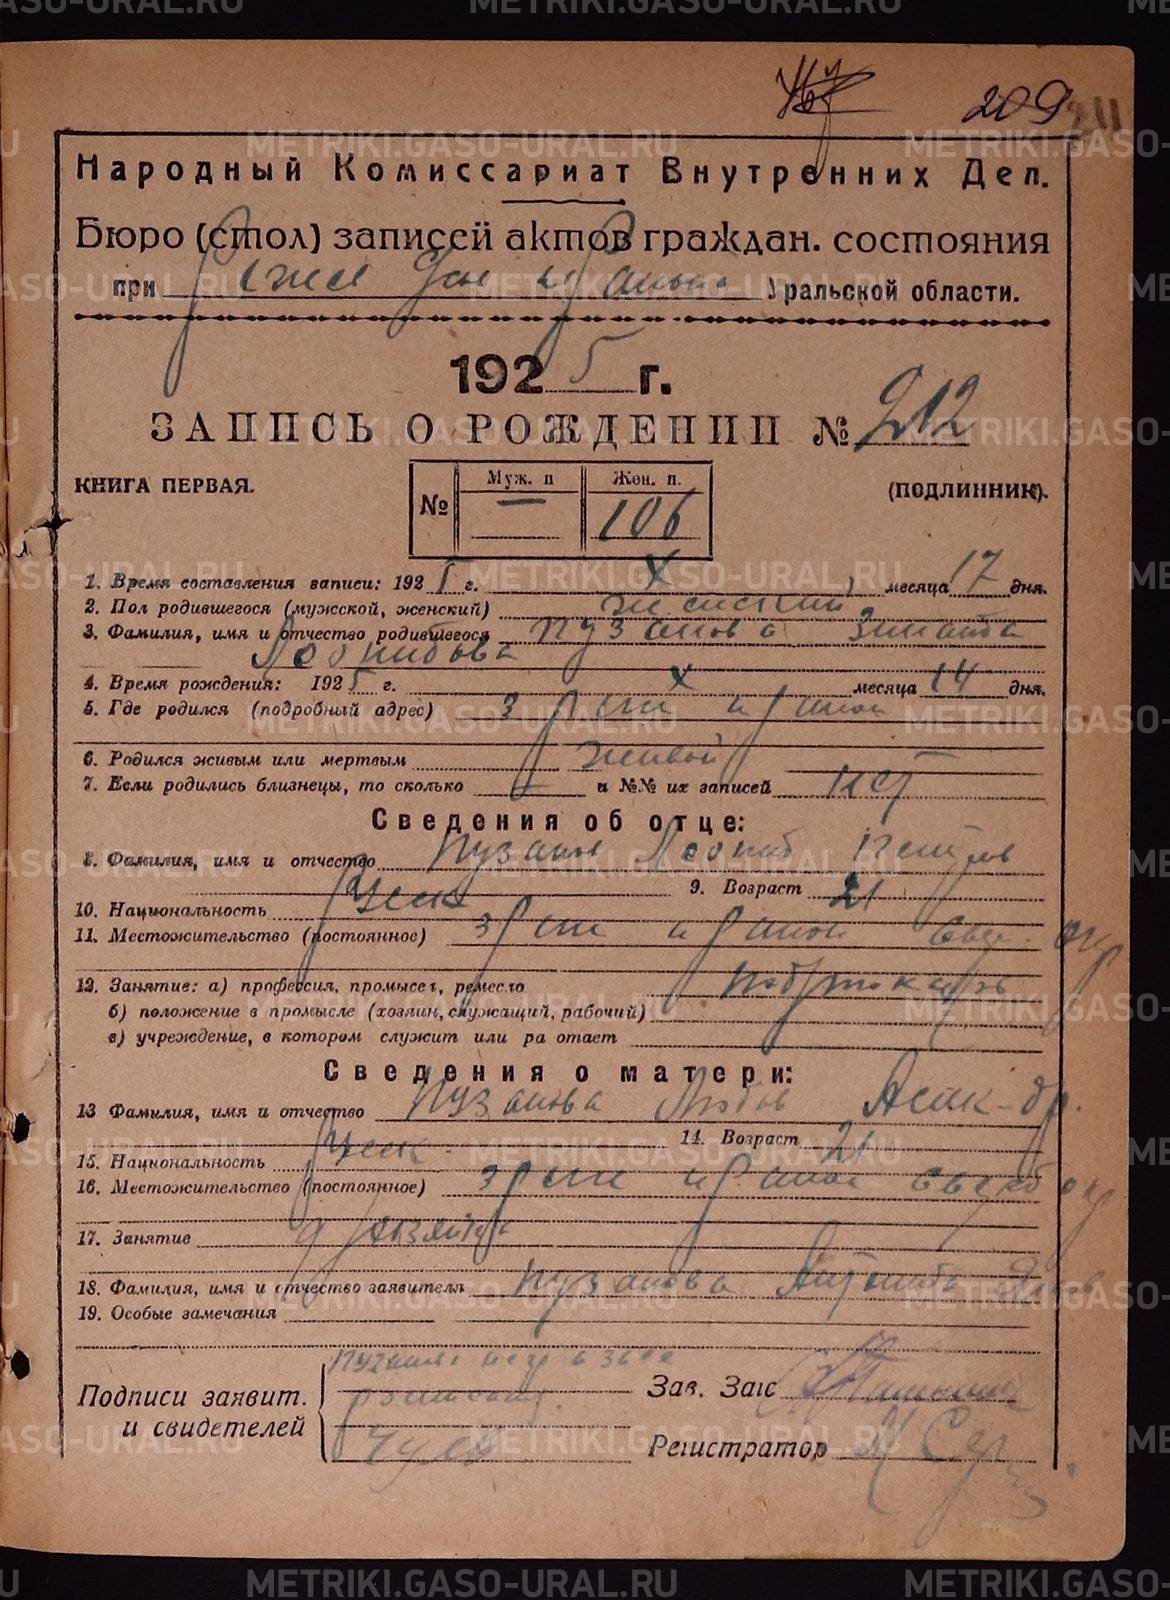 209
Народный Комиссариат Внутренних Дел.
Бюро (стол) записей актов граждан. состояния
при Уральской области.
1925 г.
ЗАПИСЬ О РОЖДЕНИИ № 212
КНИГА ПЕРВАЯ.
(ПОДЛИННИК).
№ Муж. п — Жен. п. 106
1. Время составления записи: 1925 г. X месяца 17 дня.
2. Пол родившегося (мужской, женский) женский
3. Фамилия, имя и отчество родившегося Пузанова Зинаида
Леонидовна
4. Время рождения: 1925 г. X месяца 14 дня.
5. Где родился (подробный адрес)
6. Родился живым или мертвым живой
7. Если родились близнецы, то сколько — и №№ их записей нет
Сведения об отце:
8. Фамилия, имя и отчество Пузанов Леонид Петров
9. Возраст 21
10. Национальность Русск
11. Местожительство (постоянное)
12. Занятие: а) профессия, промысел, ремесло
б) положение в промысле (хозяин, служащий, рабочий)
в) учреждение, в котором служит или ра отает
Сведения о матери:
13 Фамилия, имя и отчество Пузанова Любов
14. Возраст 21
15. Национальность Русск
16. Местожительство (постоянное)
17. Занятие
18. Фамилия, имя и отчество заявителя Пузанова
19. Особые замечания
Подписи заявит.
и свидетелей
Зав. Загс
Регистратор
METRIKI.GASO-URAL.RU